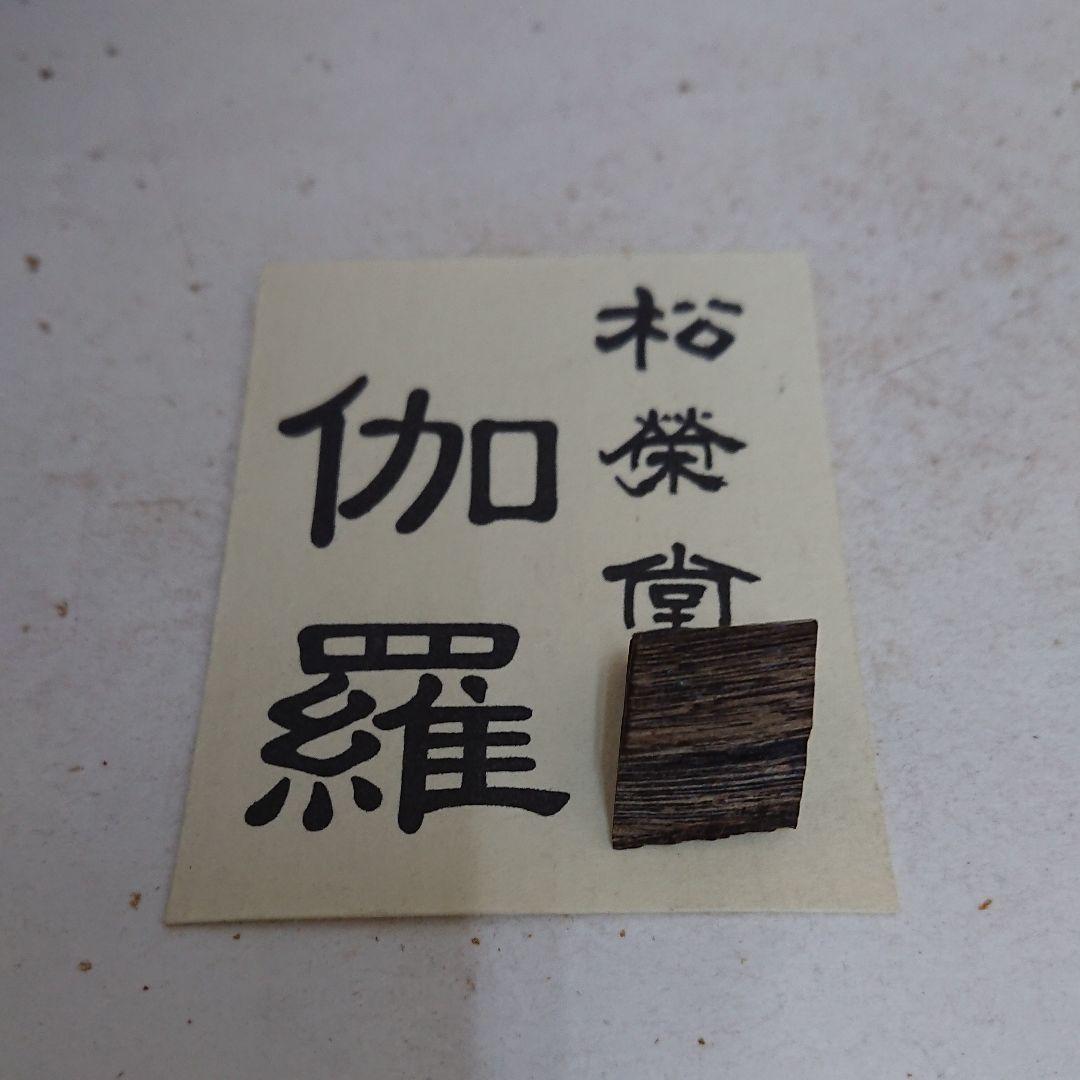 松榮堂
伽羅